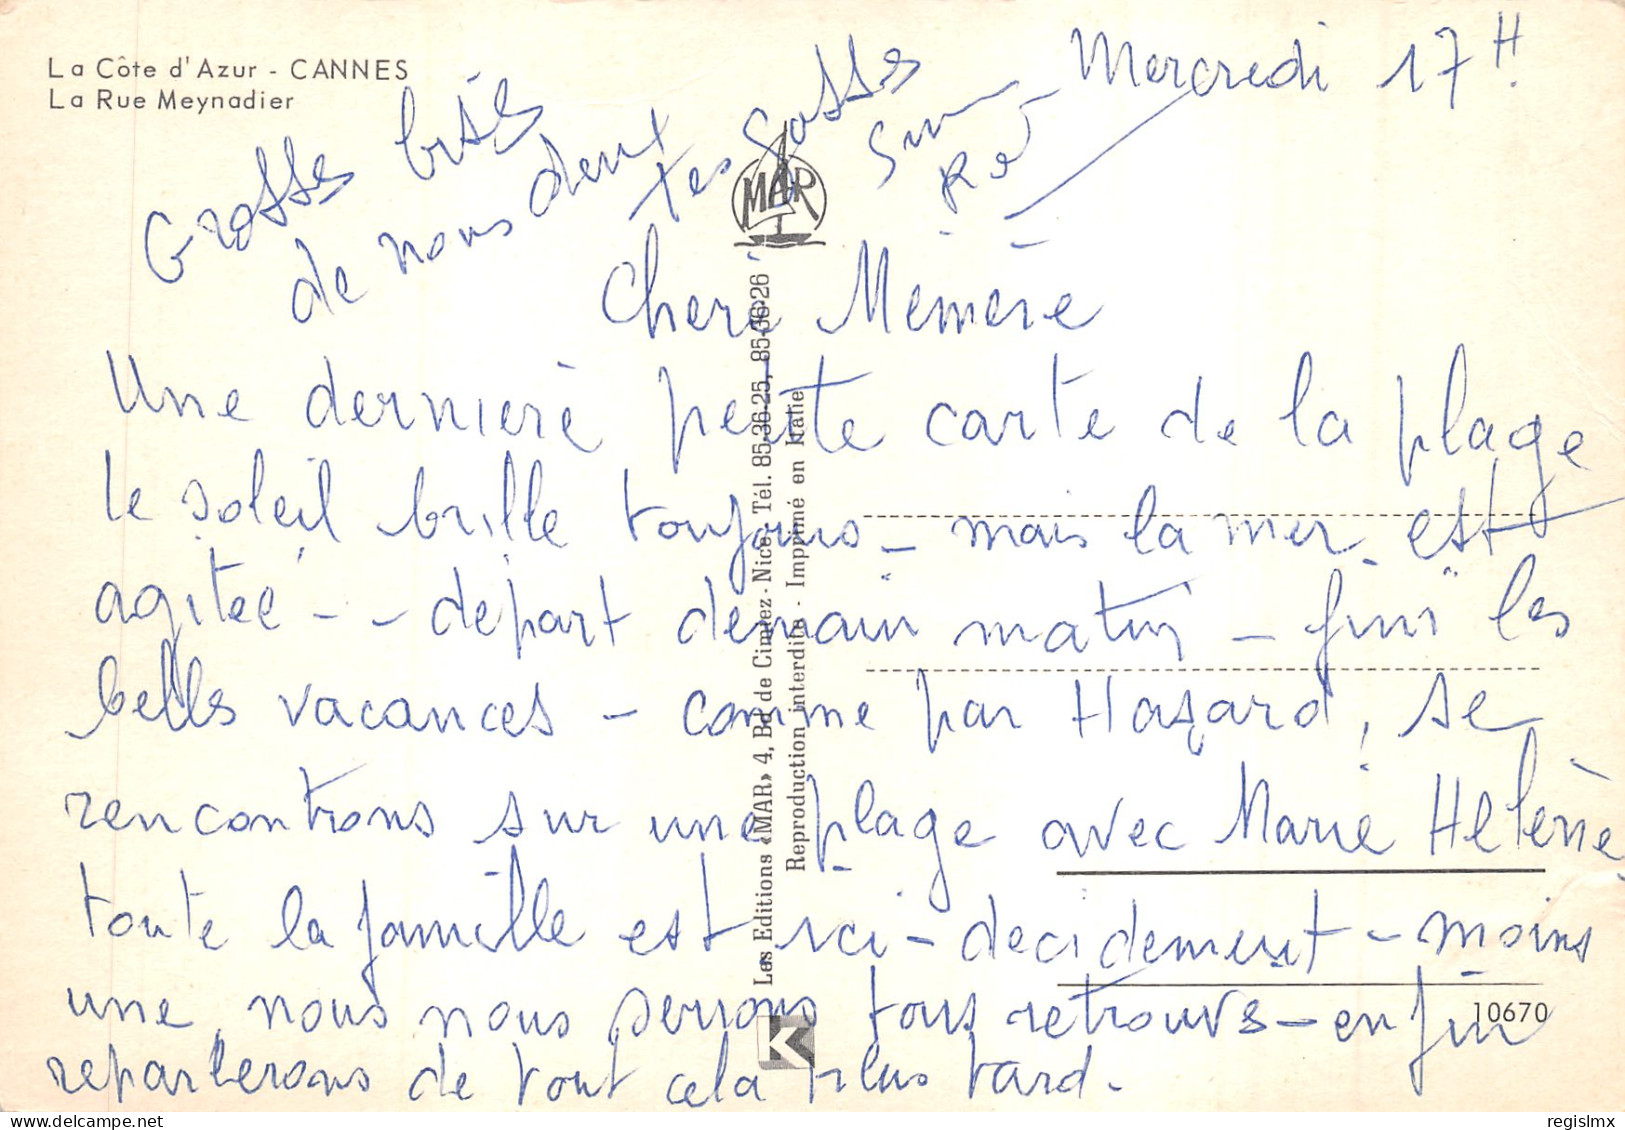 La Côte d'Azur - CANNES
La Rue Meynadier
Mercredi 17 H.
Grosses bises
de nous deux
tes gosses
MAR
Cherè Mémère
Une dernierè petite carte de la plage
le soleil brille toujours - mais la mer est
agitée - - départ demain matin - fini les
bells vacances - comme par Hasard, se
rencontrons sur une plage avec Marie Helène,
toute la famille est ici - decidement - moins
une, nous nous serrons tous retrouvs - enfin
reparlerons de tout cela plus tard.
Les Editions «MAR» 4, Bd de Cimiez - Nice - Tél. 85-36-25, 85-36-26
Reproduction interdite - Imprimé en Italie
10670
K
delcampe.net
regislmx